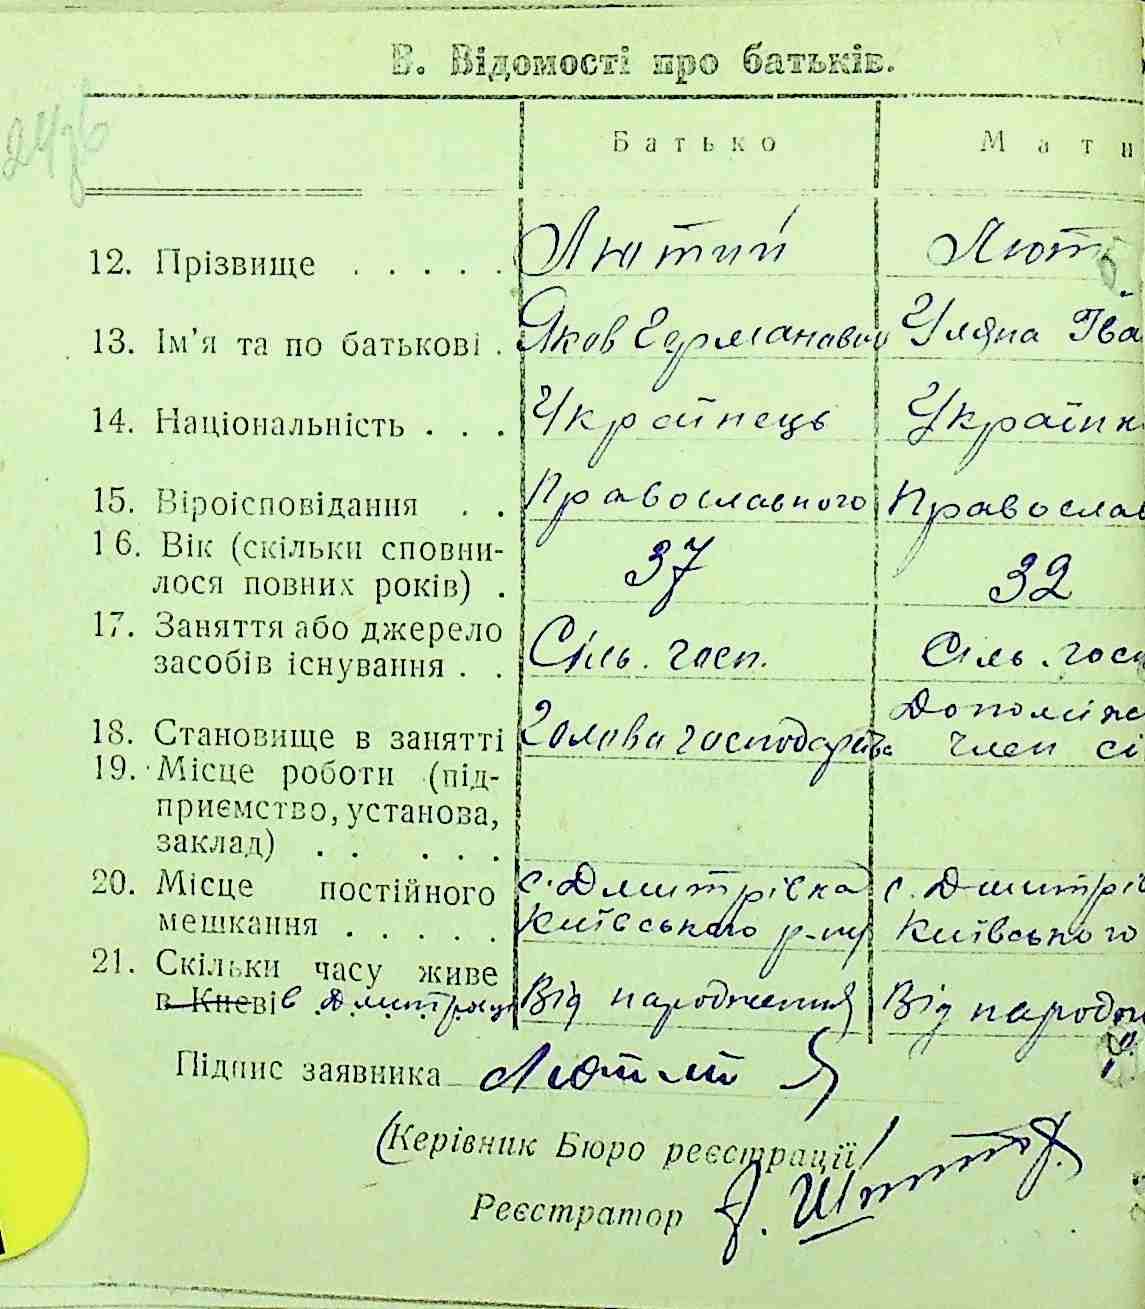 В. Відомості про батьків.
Батько Мати
12. Прізвище . . . . . Лютий Лют
13. Ім'я та по батькові . Яков Германович Уляна Іва
14. Національність . . . Украйнець Україн
15. Віроісповідання . . Православного Православ
16. Вік (скільки сповни-
лося повних років) . 37 32
17. Заняття або джерело
засобів існування . . Сіль. госп. Сіль. госп
18. Становище в занятті Голова господарства Допоміж
член сі
19. Місце роботи (під-
приємство, установа,
заклад) . . . . .
20. Місце постійного с. Дмитрівка с. Дмитрів
мешкання . . . . . Київського р-ну Київського
21. Скільки часу живе
в Києві в Від народження Від народж
Підпис заявника Лютий Я
(Керівник Бюро реєстрації)
Реєстратор